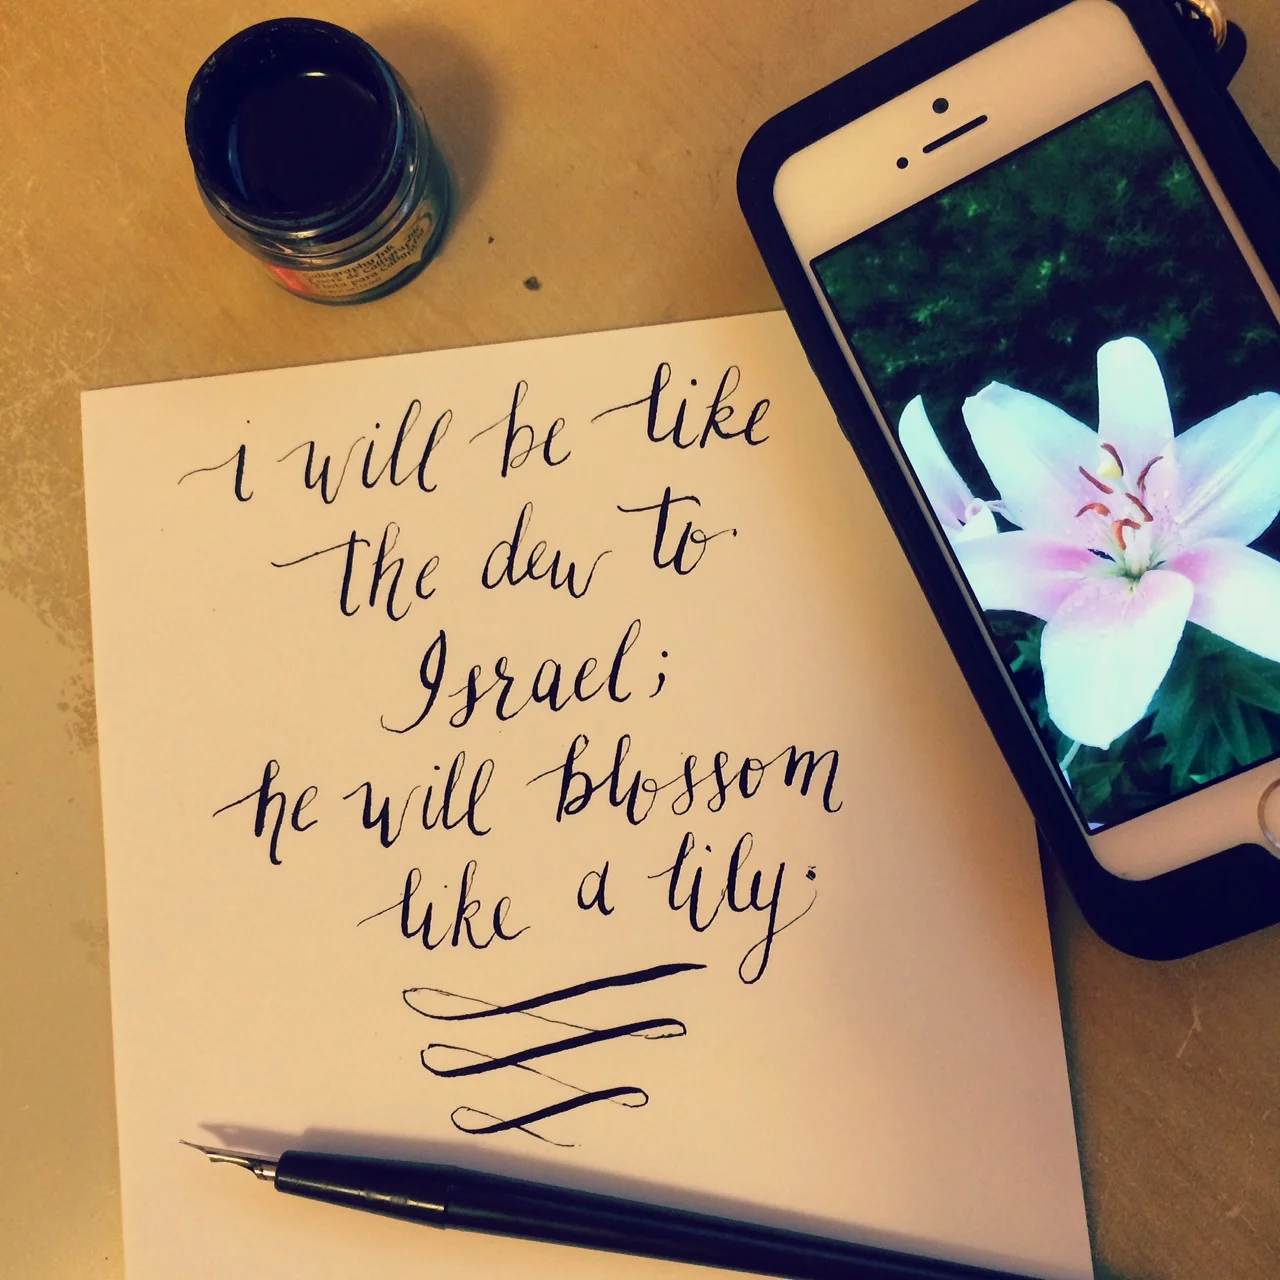 Calligraphy Ink
i will be like
the dew to
Israel;
he will blossom
like a lily.